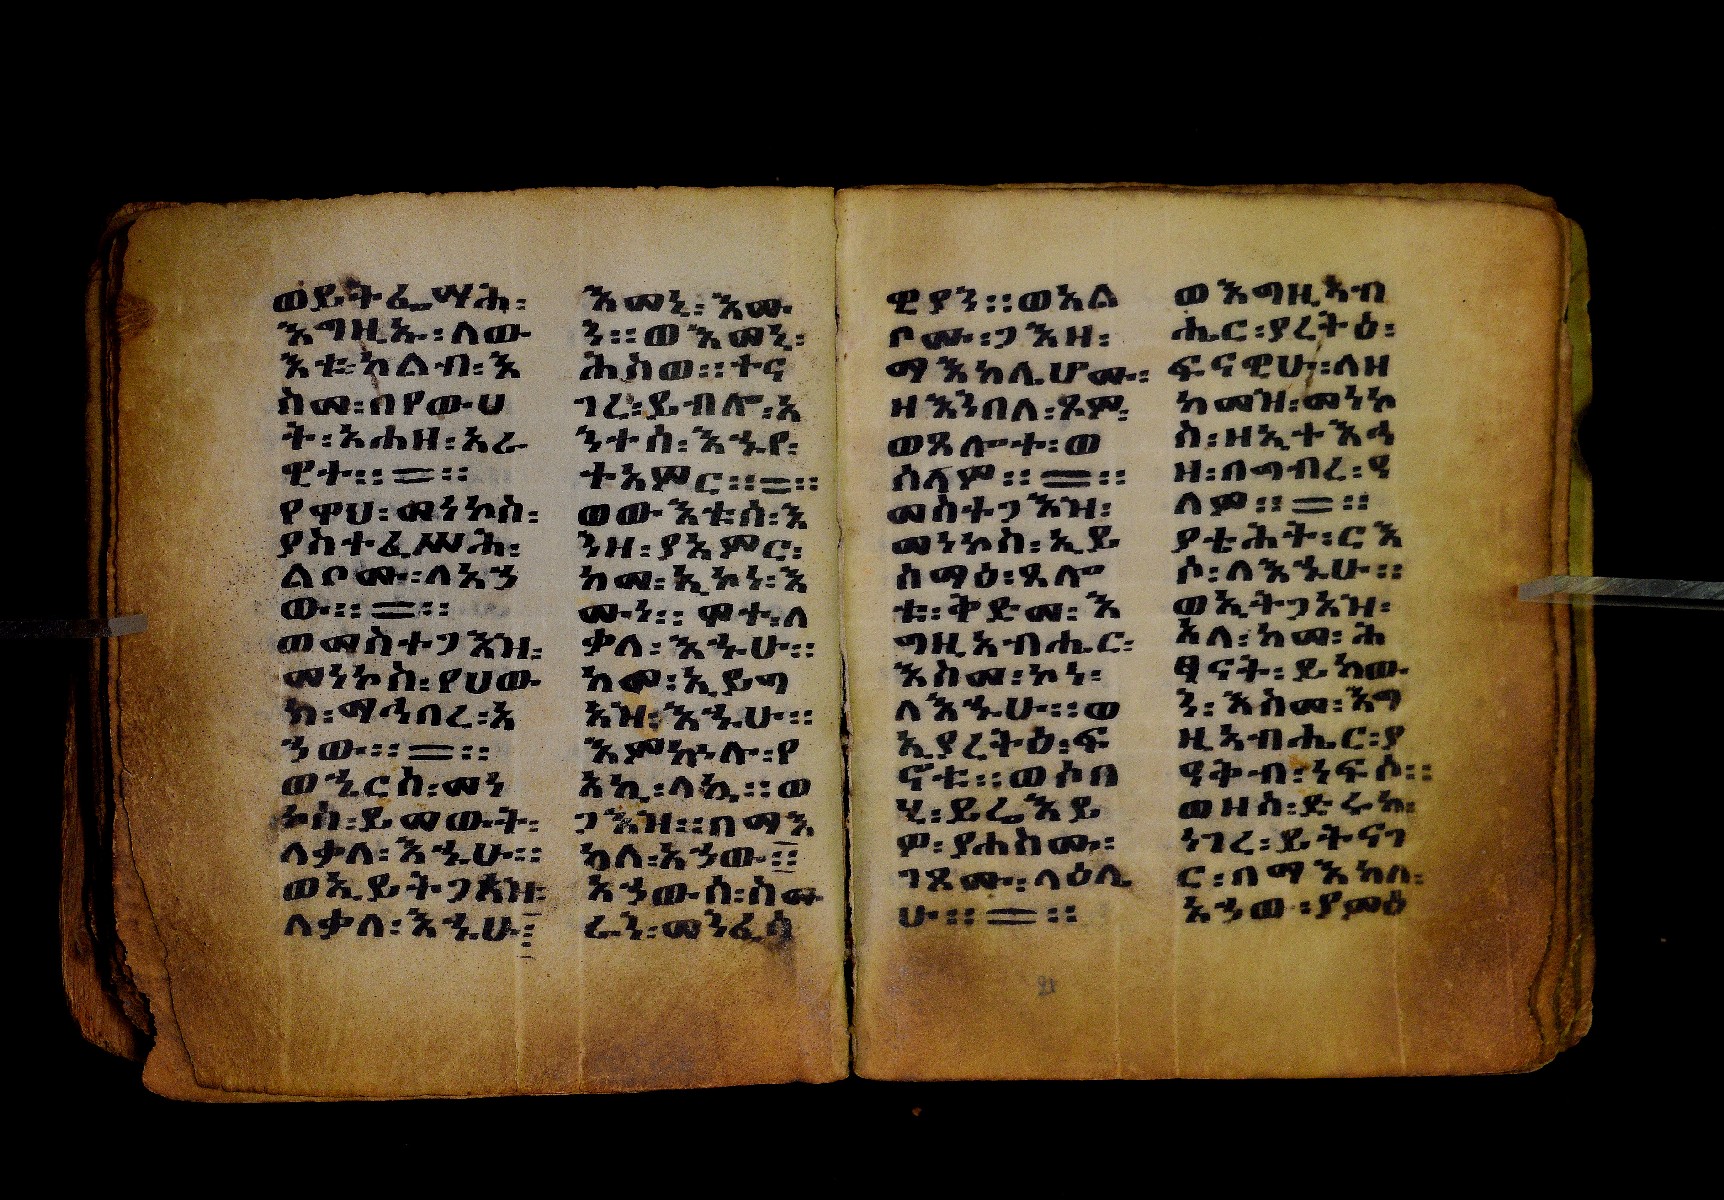 ወይትፌሣሕ፡
እግዚኡ፡ ለው
እቱ፡ ከልብ፡ እ
ስመ፡ በየውህ
ት፡ አሐዘ፡ አራ
ዊተ። = ።
የዋህ፡ መነኮስ፡
ያስተፌሥሕ፡
ልቦሙ፡ ለአኀ
ው። = ።
ወመስተጋእዝ፡
መነኮስ፡ የሀው
ክ፡ ማኅበረ፡ አ
ኀው። = ።
ወኄር ስ፡ መነ
ኮስ፡ ይመውት፡
ለቃለ፡ እኁሁ።
ወኢይትጋአዝ፡
ለቃለ፡ እኁሁ።
እመኒ፡ እሙ
ን። ወእመኒ፡
ሕስወ። ተና
ገረ፡ ይብሎ፡ አ
ንተ ሰ፡ እኁየ፡
ተአምር። = ።
ወውእቱሰ፡ እ
ንዘ፡ ያአምር፡
ከመ፡ ኢኮነ፡ እ
ሙነ። ዋተ፡ ለ
ቃለ፡ እኁሁ።
ከመ፡ ኢይግ
እዝ፡ እኁሁ።
እምኵሉ፡ የ
አኪ፡ ላኪ። ወ
ጋእዝ። በማእ
ከለ፡ አኀው።
አኀውሰ፡ ስሙ
ራን፡ መንፈሳ
ዊያን። ወአል
ቦሙ፡ ጋእዘ፡
ማእከሊሆሙ፡
ዘእንበለ፡ ጾም፡
ወጸሎተ፡ ወ
ሰላም። = ።
መስተጋእዝ፡
መነኮስ፡ ኢይ
ሰማዕ፡ ጸሎ
ቱ፡ ቅድመ፡ እ
ግዚአብሔር፡
እስመ፡ ኮነ፡
ለእኁሁ። ወ
ኢያረትዕ፡ ፍ
ኖቱ። ወሶበ
ሂ፡ ይሬእይ
ም፡ ያሐስሙ፡
ገጾሙ፡ ላዕሌ
ሁ። = ።
ወእግዚአብ
ሔር፡ ያረትዕ፡
ፍናዊሁ፡ ለዘ
ከመዝ፡ መነኮ
ስ፡ ዘኢተእኅ
ዘ፡ በግብረ፡ ዓ
ለም። = ።
ያቲሕት፡ ርእ
ሶ፡ ለእኁሁ።
ወኢትጋአዝ፡
አለ፡ ከመ፡ ሕ
ፃናት፡ ይከው
ን፡ እስመ፡ እግ
ዚአብሔር፡ ያ
ዓቅብ፡ ነፍሶ።
ወዘሰ፡ ድሩክ፡
ነገረ፡ ይትናገ
ር፡ በማእከለ፡
አኀው፡ ያመዕ